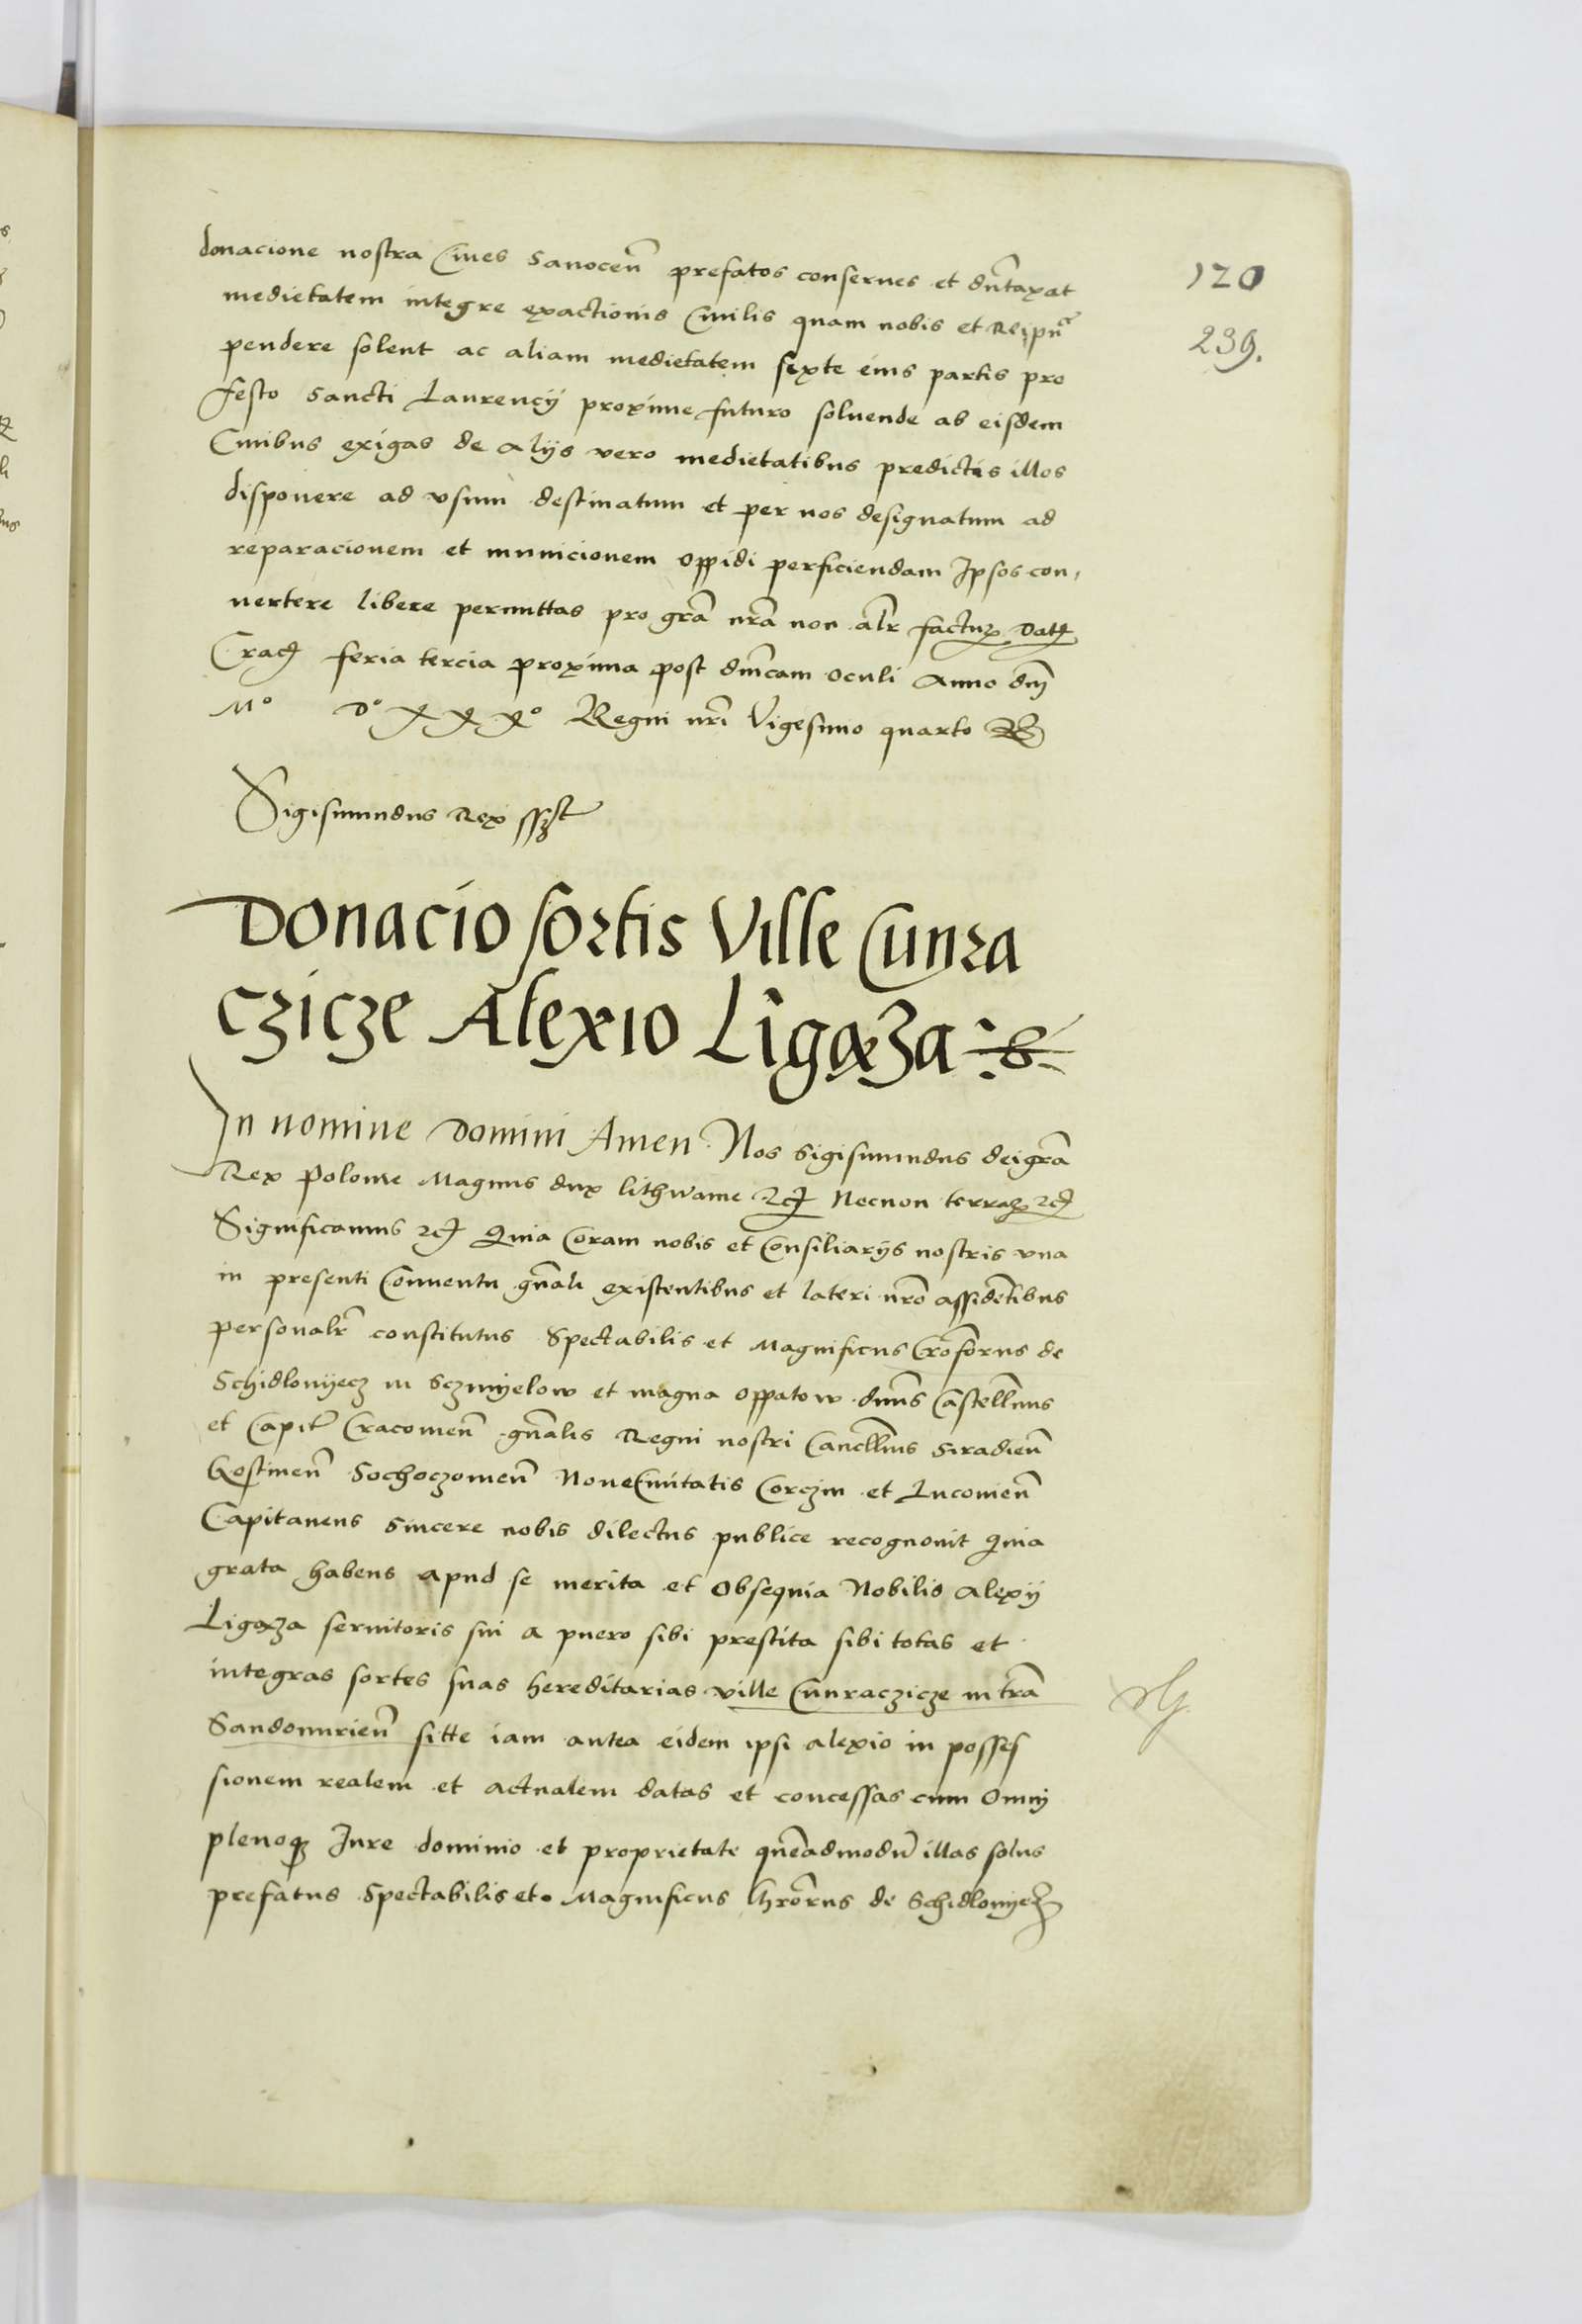 120
239.
donacione nostra Ciues Sanocen̄ prefatos conserues et dūtaxat
medietatem integre exactionis Ciuilis quam nobis et Reipu͞ᵉ
pendere solent ac aliam medietatem sexte eius partis pro
festo Sancti Laurencij proxime futuro soluende ab eisdem
Ciuibus exigas de alijs vero medietatibus predictis illos
disponere ad vsum destinatum et per nos designatum ad
reparacionem et municionem oppidi perficiendam Ipsos con,
uertere libere permittas pro grā nrā non alr̄ factuꝝ Datꝭ
Cracꝭ feria tercia proxima post dn̄icam Oculi Anno dn̄j
Mº Dº XXXº Regni nrī Vigesimo quarto
Sigismundus Rex sszt
Donacio sortis Ville Cunra
czicze Alexio Ligąza
In nomine Domini Amen Nos Sigismundus dei grā
Rex Polonie Magnus dux lithwanie ⁊cꝭ Necnon terraꝝ ⁊cꝭ
Significamus ⁊cꝭ Quia Coram nobis et Consiliarijs nostris vna
in presenti Conuentu gn̄ali existentibus et lateri nrō assidētibus
personalr̄ constitutus Spectabilis et Magnificus Crōforus de
Schidlouijecz in Sczmijelow et magna Oppatow dn̄us Castell̄nus
et Capit̄ Cracouien̄ gn̄alis Regni nostri Cancll̄ius Siradien̄
Gostinen̄ Sochoczouien̄ NoueCiuitatis Corczin et Lucouien̄
Capitaneus Sincere nobis dilectus publice recognouit Quia
grata habens apud se merita et Obsequia Nobilis Alexij
Ligąza seruitoris sui a puero sibi prestita sibi totas et
integras sortes suas hereditarias ville Cunraczicze in trā
Sandomirien̄ sitte iam antea eidem ipsi alexio in posses
sionem realem et actualem datas et concessas cum Omnj
plenoqꝫ Iure dominio et proprietate quēadmodū illas solus
prefatus Spectabilis et Magnificus Chrōrus de Schidlouijecz